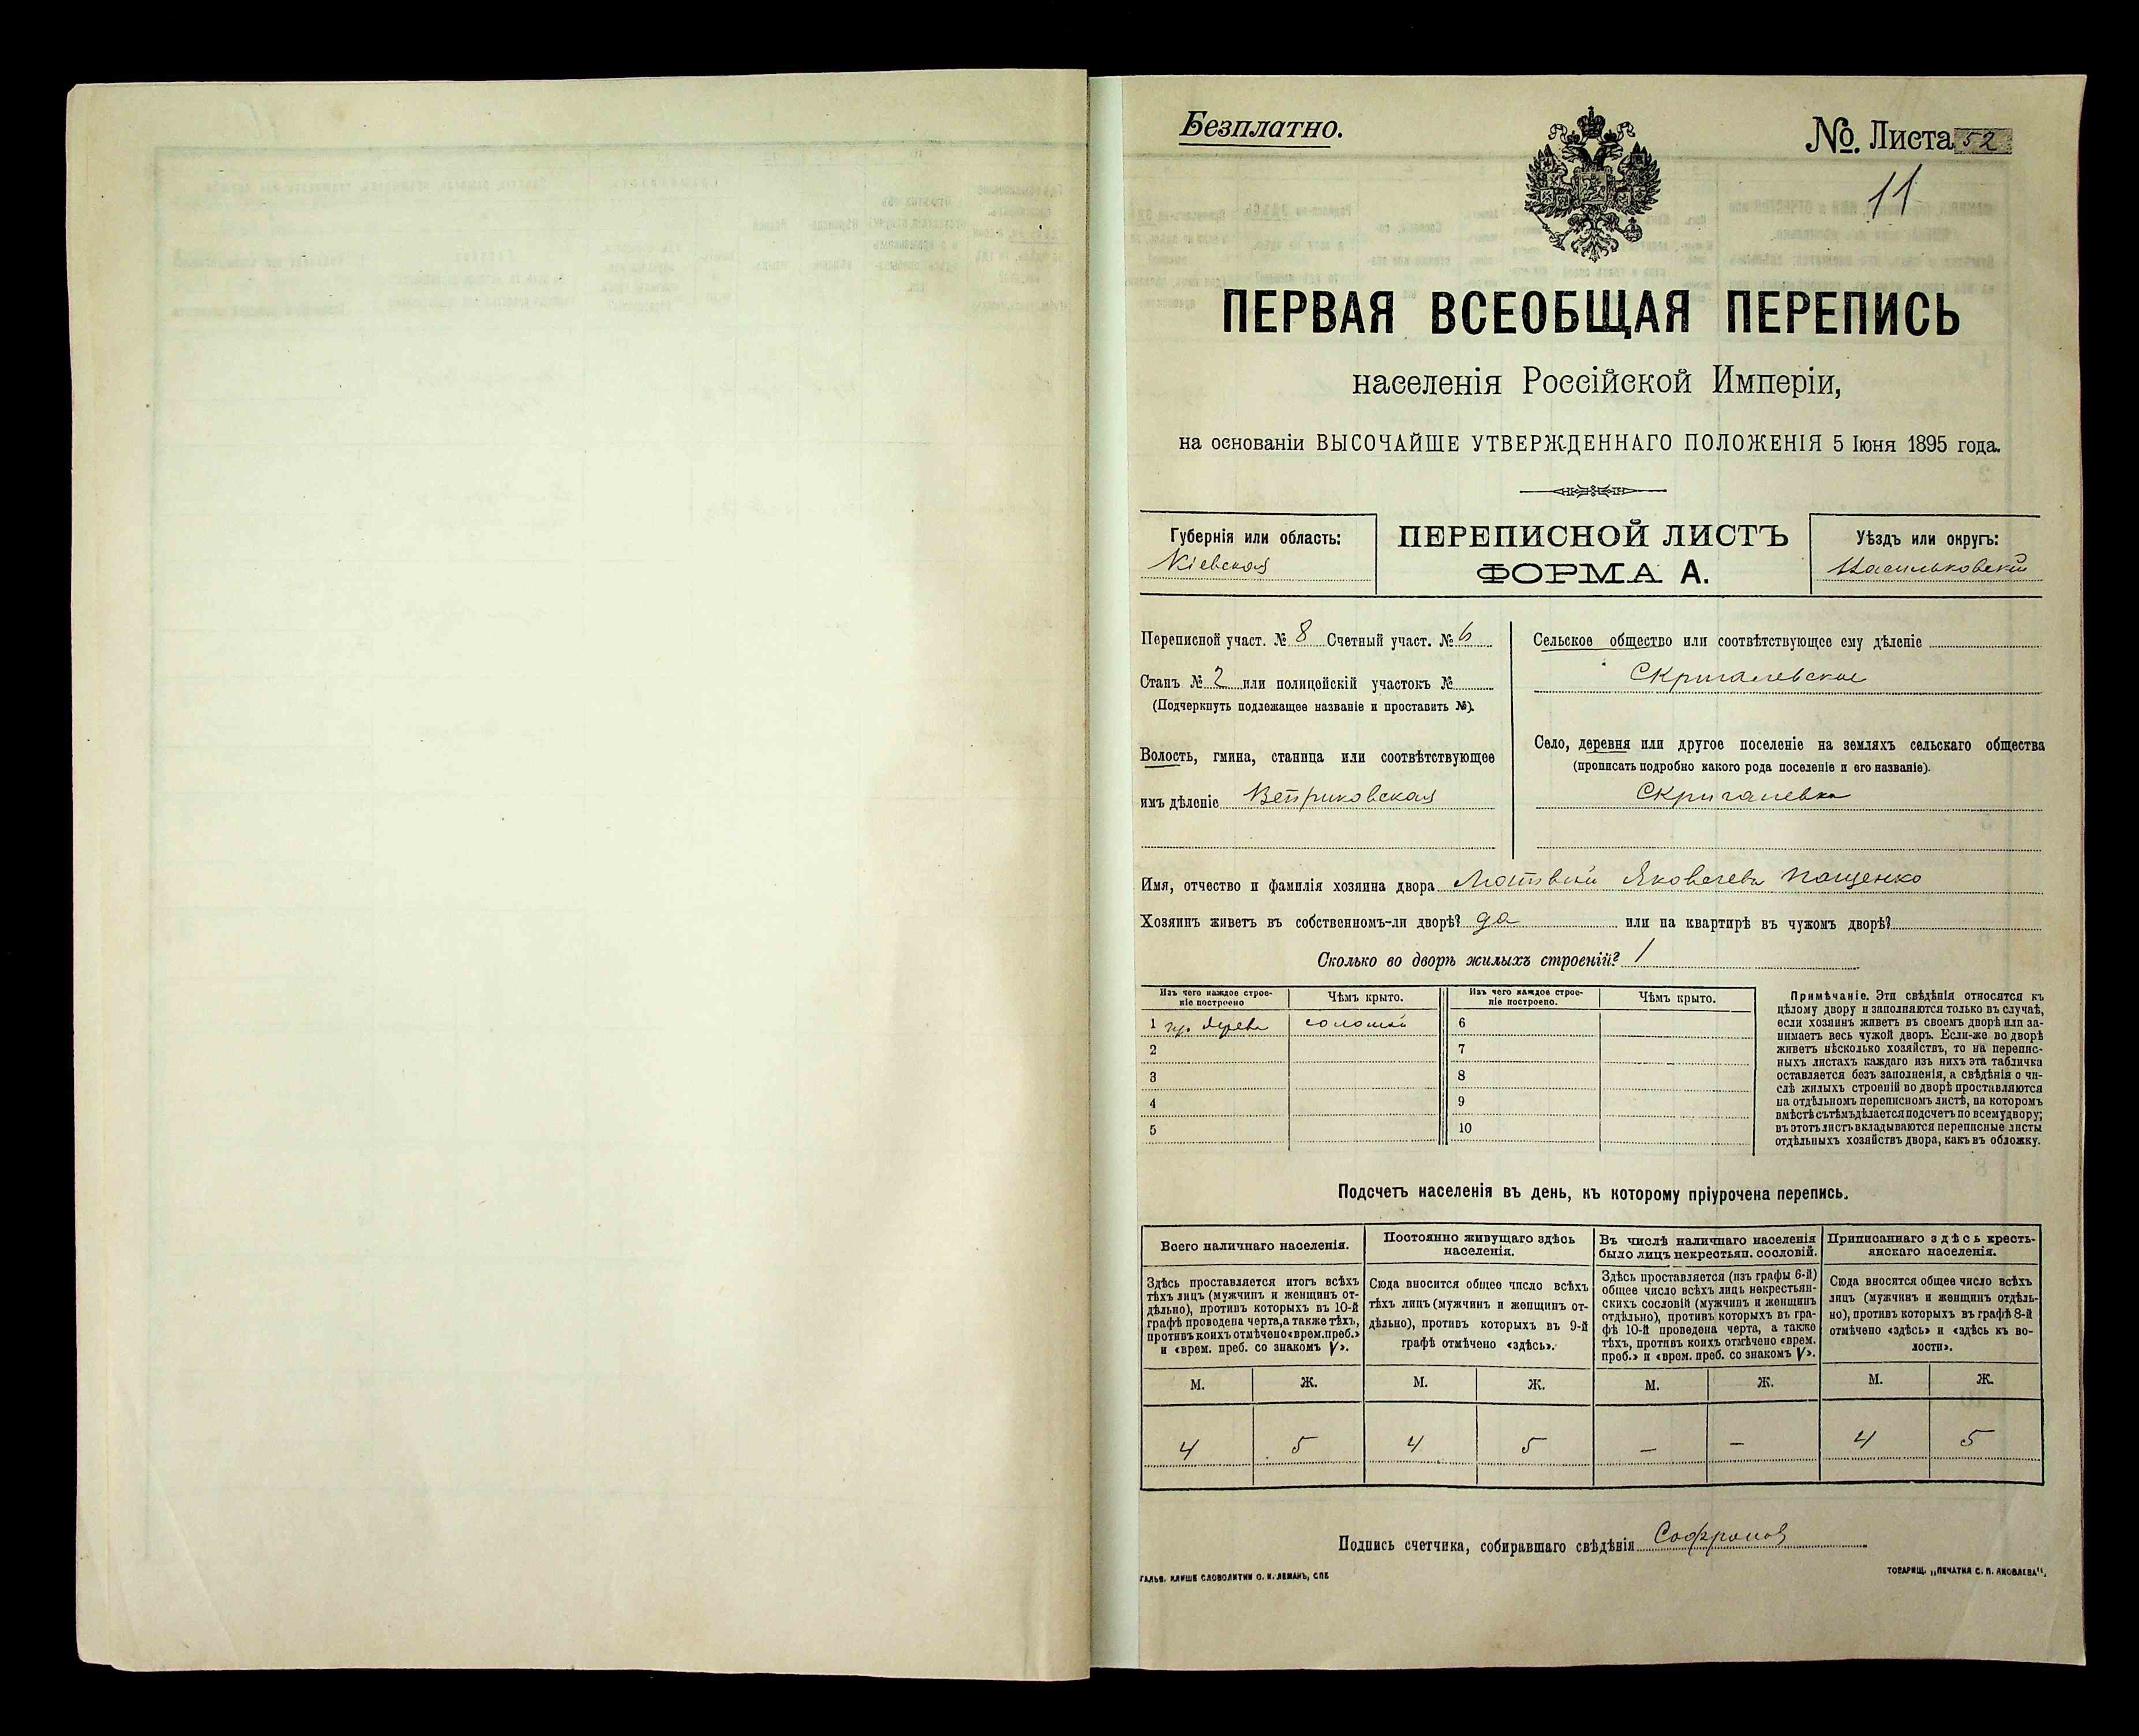 Безплатно.
№ Листа 52
11
ПЕРВАЯ ВСЕОБЩАЯ ПЕРЕПИСЬ
населенія Россійской Имперіи,
на основаніи ВЫСОЧАЙШЕ УТВЕРЖДЕННАГО ПОЛОЖЕНІЯ 5 Іюня 1895 года.
Губернія или область:
Кіевская
ПЕРЕПИСНОЙ ЛИСТЪ
ФОРМА А.
Уѣздъ или округъ:
Васильковскій
Переписной участ. № 8 Счетный участ. № 6
Станъ № 2 или полицейскій участокъ №
(Подчеркнуть подлежащее названіе и проставить №).
Волость, гмина, станица или соотвѣтствующее
имъ дѣленіе Веприковская
Сельское общество или соотвѣтствующее ему дѣленіе
Скригалевское
Село, деревня или другое поселеніе на земляхъ сельскаго общества
(прописать подробно какого рода поселеніе и его названіе).
Скригалевка
Имя, отчество и фамилія хозяина двора Матвѣй Яковлевъ Пащенко
Хозяинъ живетъ въ собственномъ-ли дворѣ? да или на квартирѣ въ чужомъ дворѣ?
Сколько во дворѣ жилыхъ строеній? 1
Изъ чего каждое строе-
ніе построено
Чѣмъ крыто.
Изъ чего каждое строе-
ніе построено.
Чѣмъ крыто.
1 дерева соломой 6
2 7
3 8
4 9
5 10
Примѣчаніе. Эти свѣдѣнія относятся къ
цѣлому двору и заполняются только въ случаѣ,
если хозяинъ живетъ въ своемъ дворѣ или за-
нимаетъ весь чужой дворъ. Если-же во дворѣ
живетъ нѣсколько хозяйствъ, то на перепис-
ныхъ листахъ каждаго изъ нихъ эта табличка
оставляется безъ заполненія, а свѣдѣнія о чи-
слѣ жилыхъ строеній во дворѣ проставляются
на отдѣльномъ переписномъ листѣ, на которомъ
вмѣстѣ съ тѣмъ дѣлается подсчетъ по всему двору;
въ этотъ листъ вкладываются переписные листы
отдѣльныхъ хозяйствъ двора, какъ въ обложку.
Подсчетъ населенія въ день, къ которому пріурочена перепись.
Всего наличнаго населенія.
Постоянно живущаго здѣсь
населенія.
Въ числѣ наличнаго населенія
было лицъ некрестьян. сословій.
Приписаннаго здѣсь кресть-
янскаго населенія.
Здѣсь проставляется итогъ всѣхъ
тѣхъ лицъ (мужчинъ и женщинъ от-
дѣльно), противъ которыхъ въ 10-й
графѣ проведена черта, а также тѣхъ,
противъ коихъ отмѣчено «врем. преб.»
и «врем. преб. со знакомъ V».
Сюда вносится общее число всѣхъ
тѣхъ лицъ (мужчинъ и женщинъ от-
дѣльно), противъ которыхъ въ 9-й
графѣ отмѣчено «здѣсь».
Здѣсь проставляется (изъ графы 6-й)
общее число всѣхъ лицъ некрестьян-
скихъ сословій (мужчинъ и женщинъ
отдѣльно), противъ которыхъ въ гра-
фѣ 10-й проведена черта, а также
тѣхъ, противъ коихъ отмѣчено «врем.
преб.» и «врем. преб. со знакомъ V».
Сюда вносится общее число всѣхъ
лицъ (мужчинъ и женщинъ отдѣль-
но), противъ которыхъ въ графѣ 8-й
отмѣчено «здѣсь» и «здѣсь къ во-
лости».
М. Ж. М. Ж. М. Ж. М. Ж.
4 5 4 5 — — 4 5
Подпись счетчика, собиравшаго свѣдѣнія Софронов
ГАЛЬВ. КЛИШЕ СЛОВОЛИТНИ О. И. ЛЕМАНЪ, СПБ
ТОВАРИЩ. „ПЕЧАТНЯ С. П. ЯКОВЛЕВА".